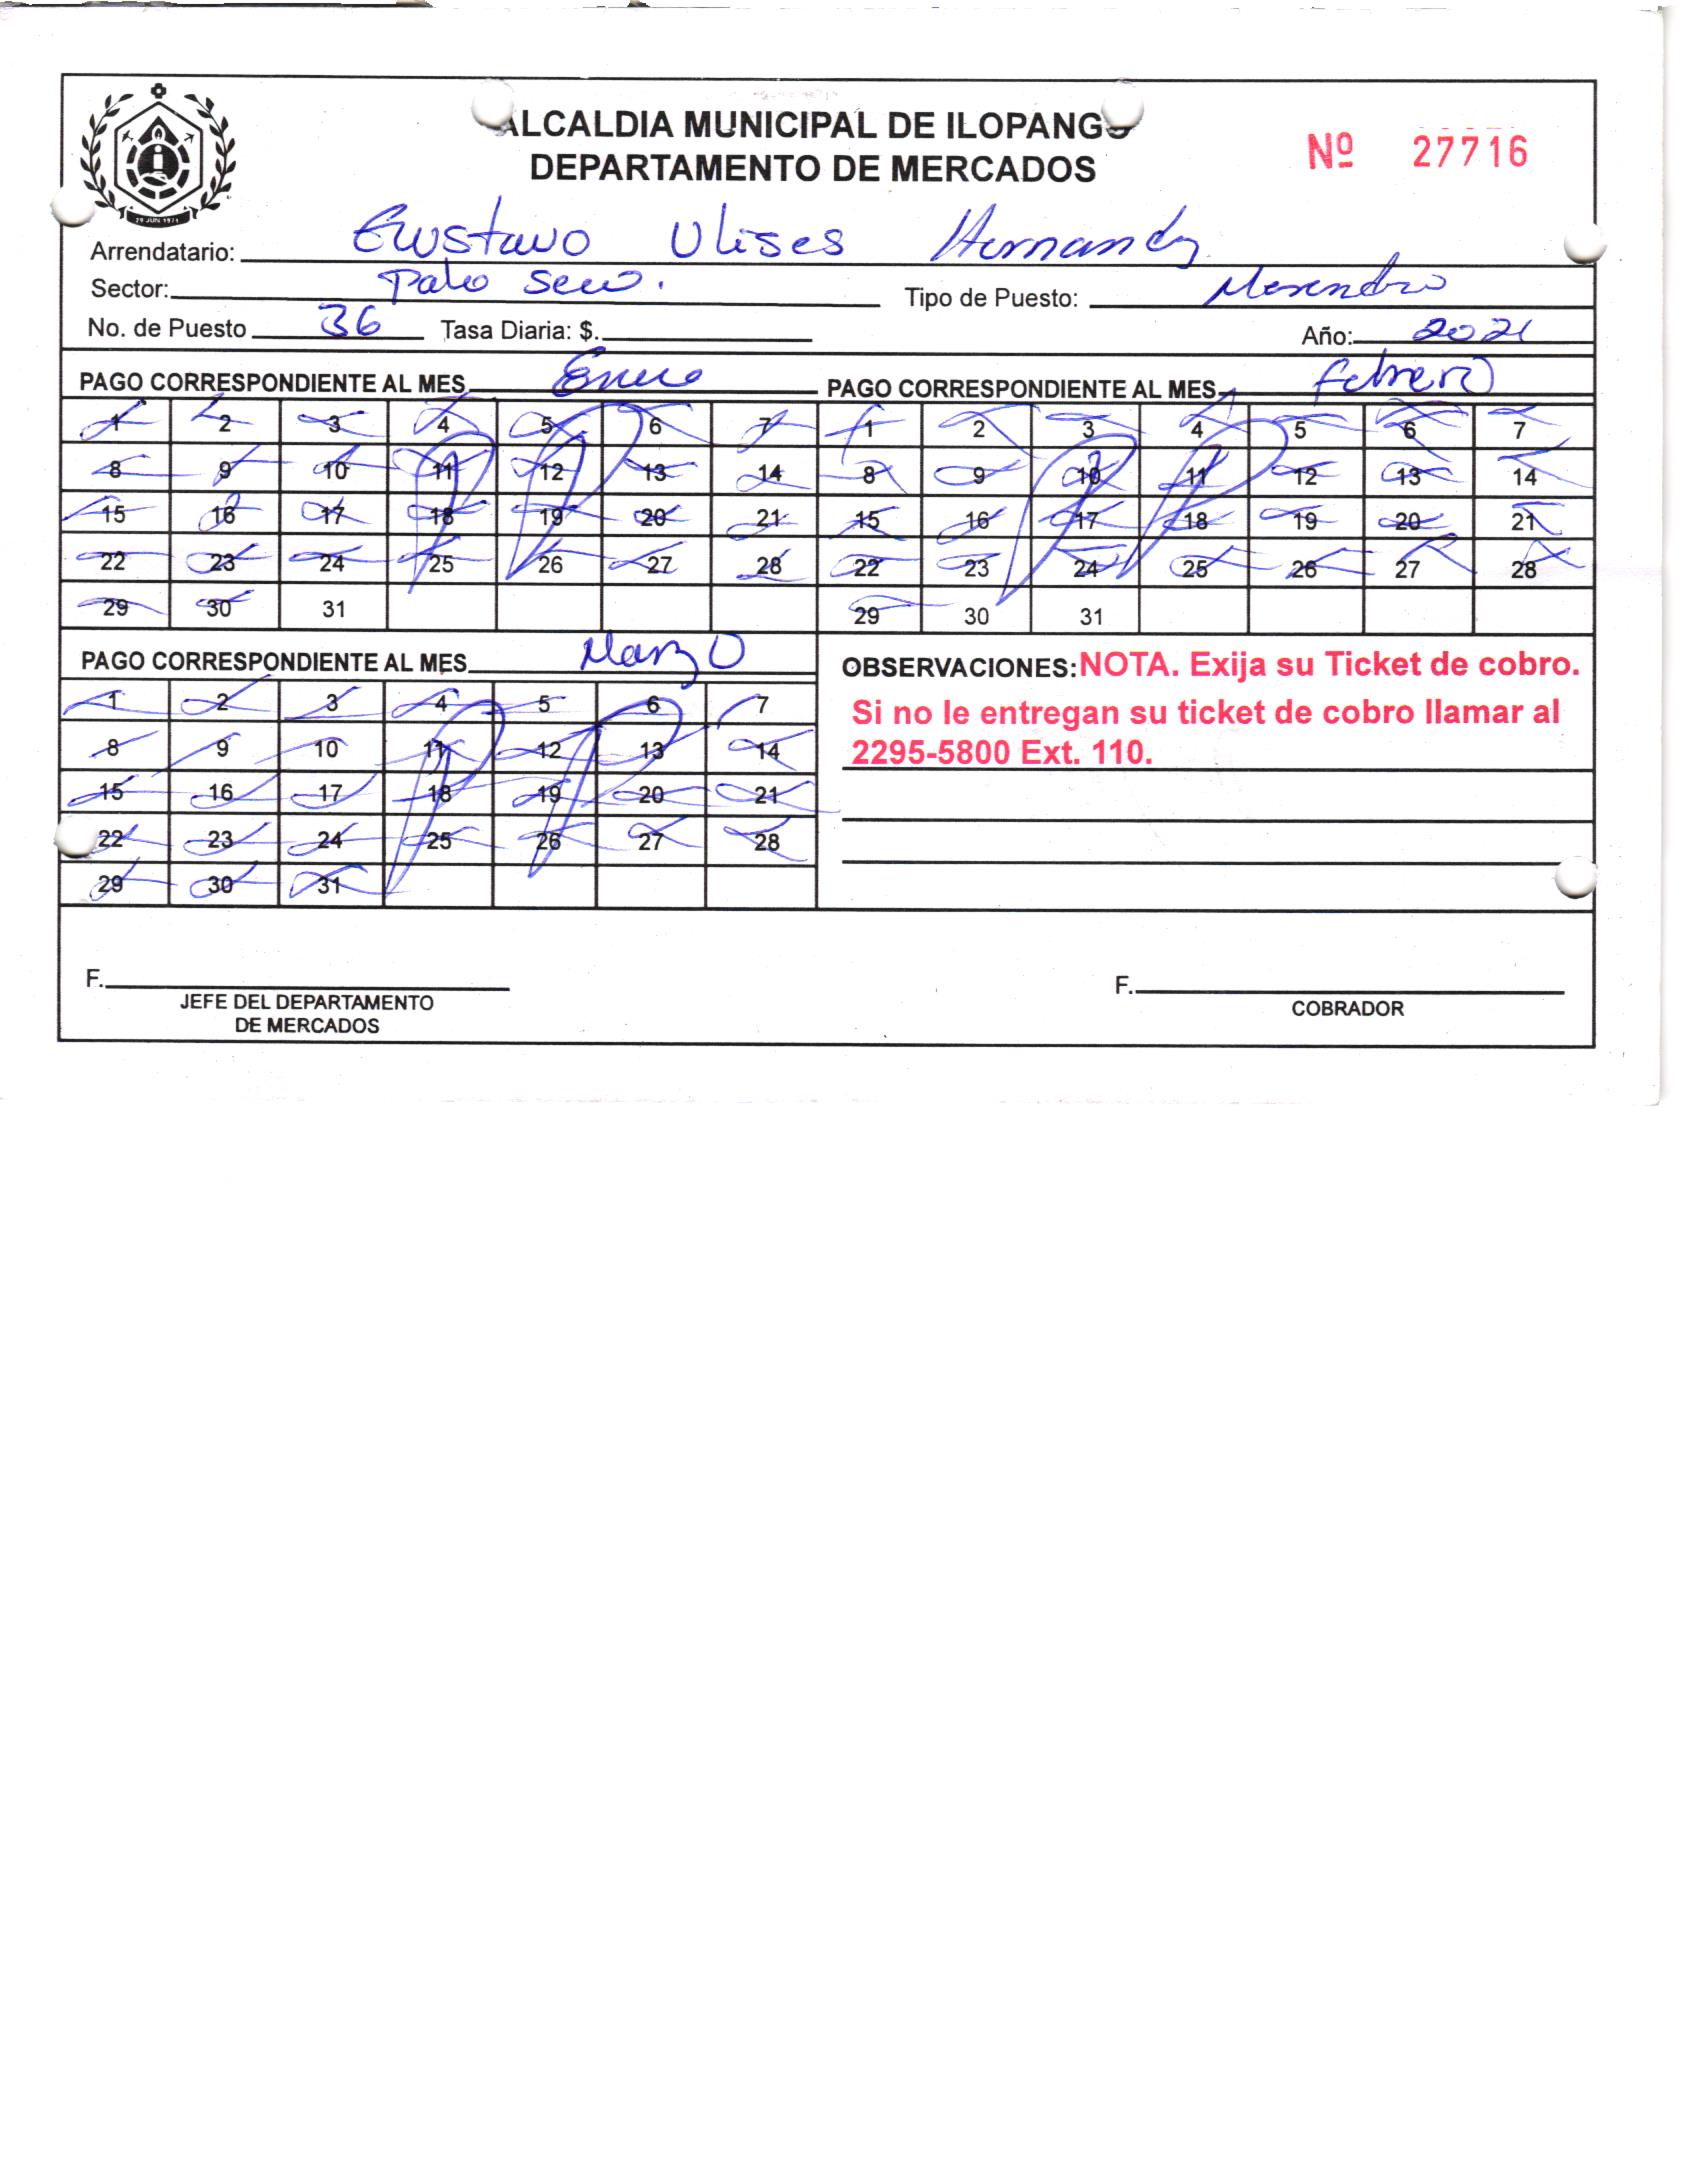 ALCALDIA MUNICIPAL DE ILOPANGO
DEPARTAMENTO DE MERCADOS
Nº 27716
29 JUN 1971
Arrendatario: Gustavo Ulises Hernandez
Sector: Palo Seco.
Tipo de Puesto: Merendero
No. de Puesto 36 Tasa Diaria: $.
Año: 2021
PAGO CORRESPONDIENTE AL MES Enero
1 2 3 4 5 6 7
8 9 10 11 12 13 14
15 16 17 18 19 20 21
22 23 24 25 26 27 28
29 30 31
PAGO CORRESPONDIENTE AL MES febrero
1 2 3 4 5 6 7
8 9 10 11 12 13 14
15 16 17 18 19 20 21
22 23 24 25 26 27 28
29 30 31
PAGO CORRESPONDIENTE AL MES Marzo
1 2 3 4 5 6 7
8 9 10 11 12 13 14
15 16 17 18 19 20 21
22 23 24 25 26 27 28
29 30 31
OBSERVACIONES: NOTA. Exija su Ticket de cobro.
Si no le entregan su ticket de cobro llamar al
2295-5800 Ext. 110.
F.
JEFE DEL DEPARTAMENTO
DE MERCADOS
F.
COBRADOR